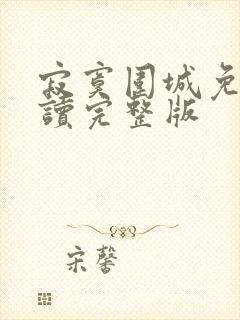 寂寞围城免
讀完整版
宋馨